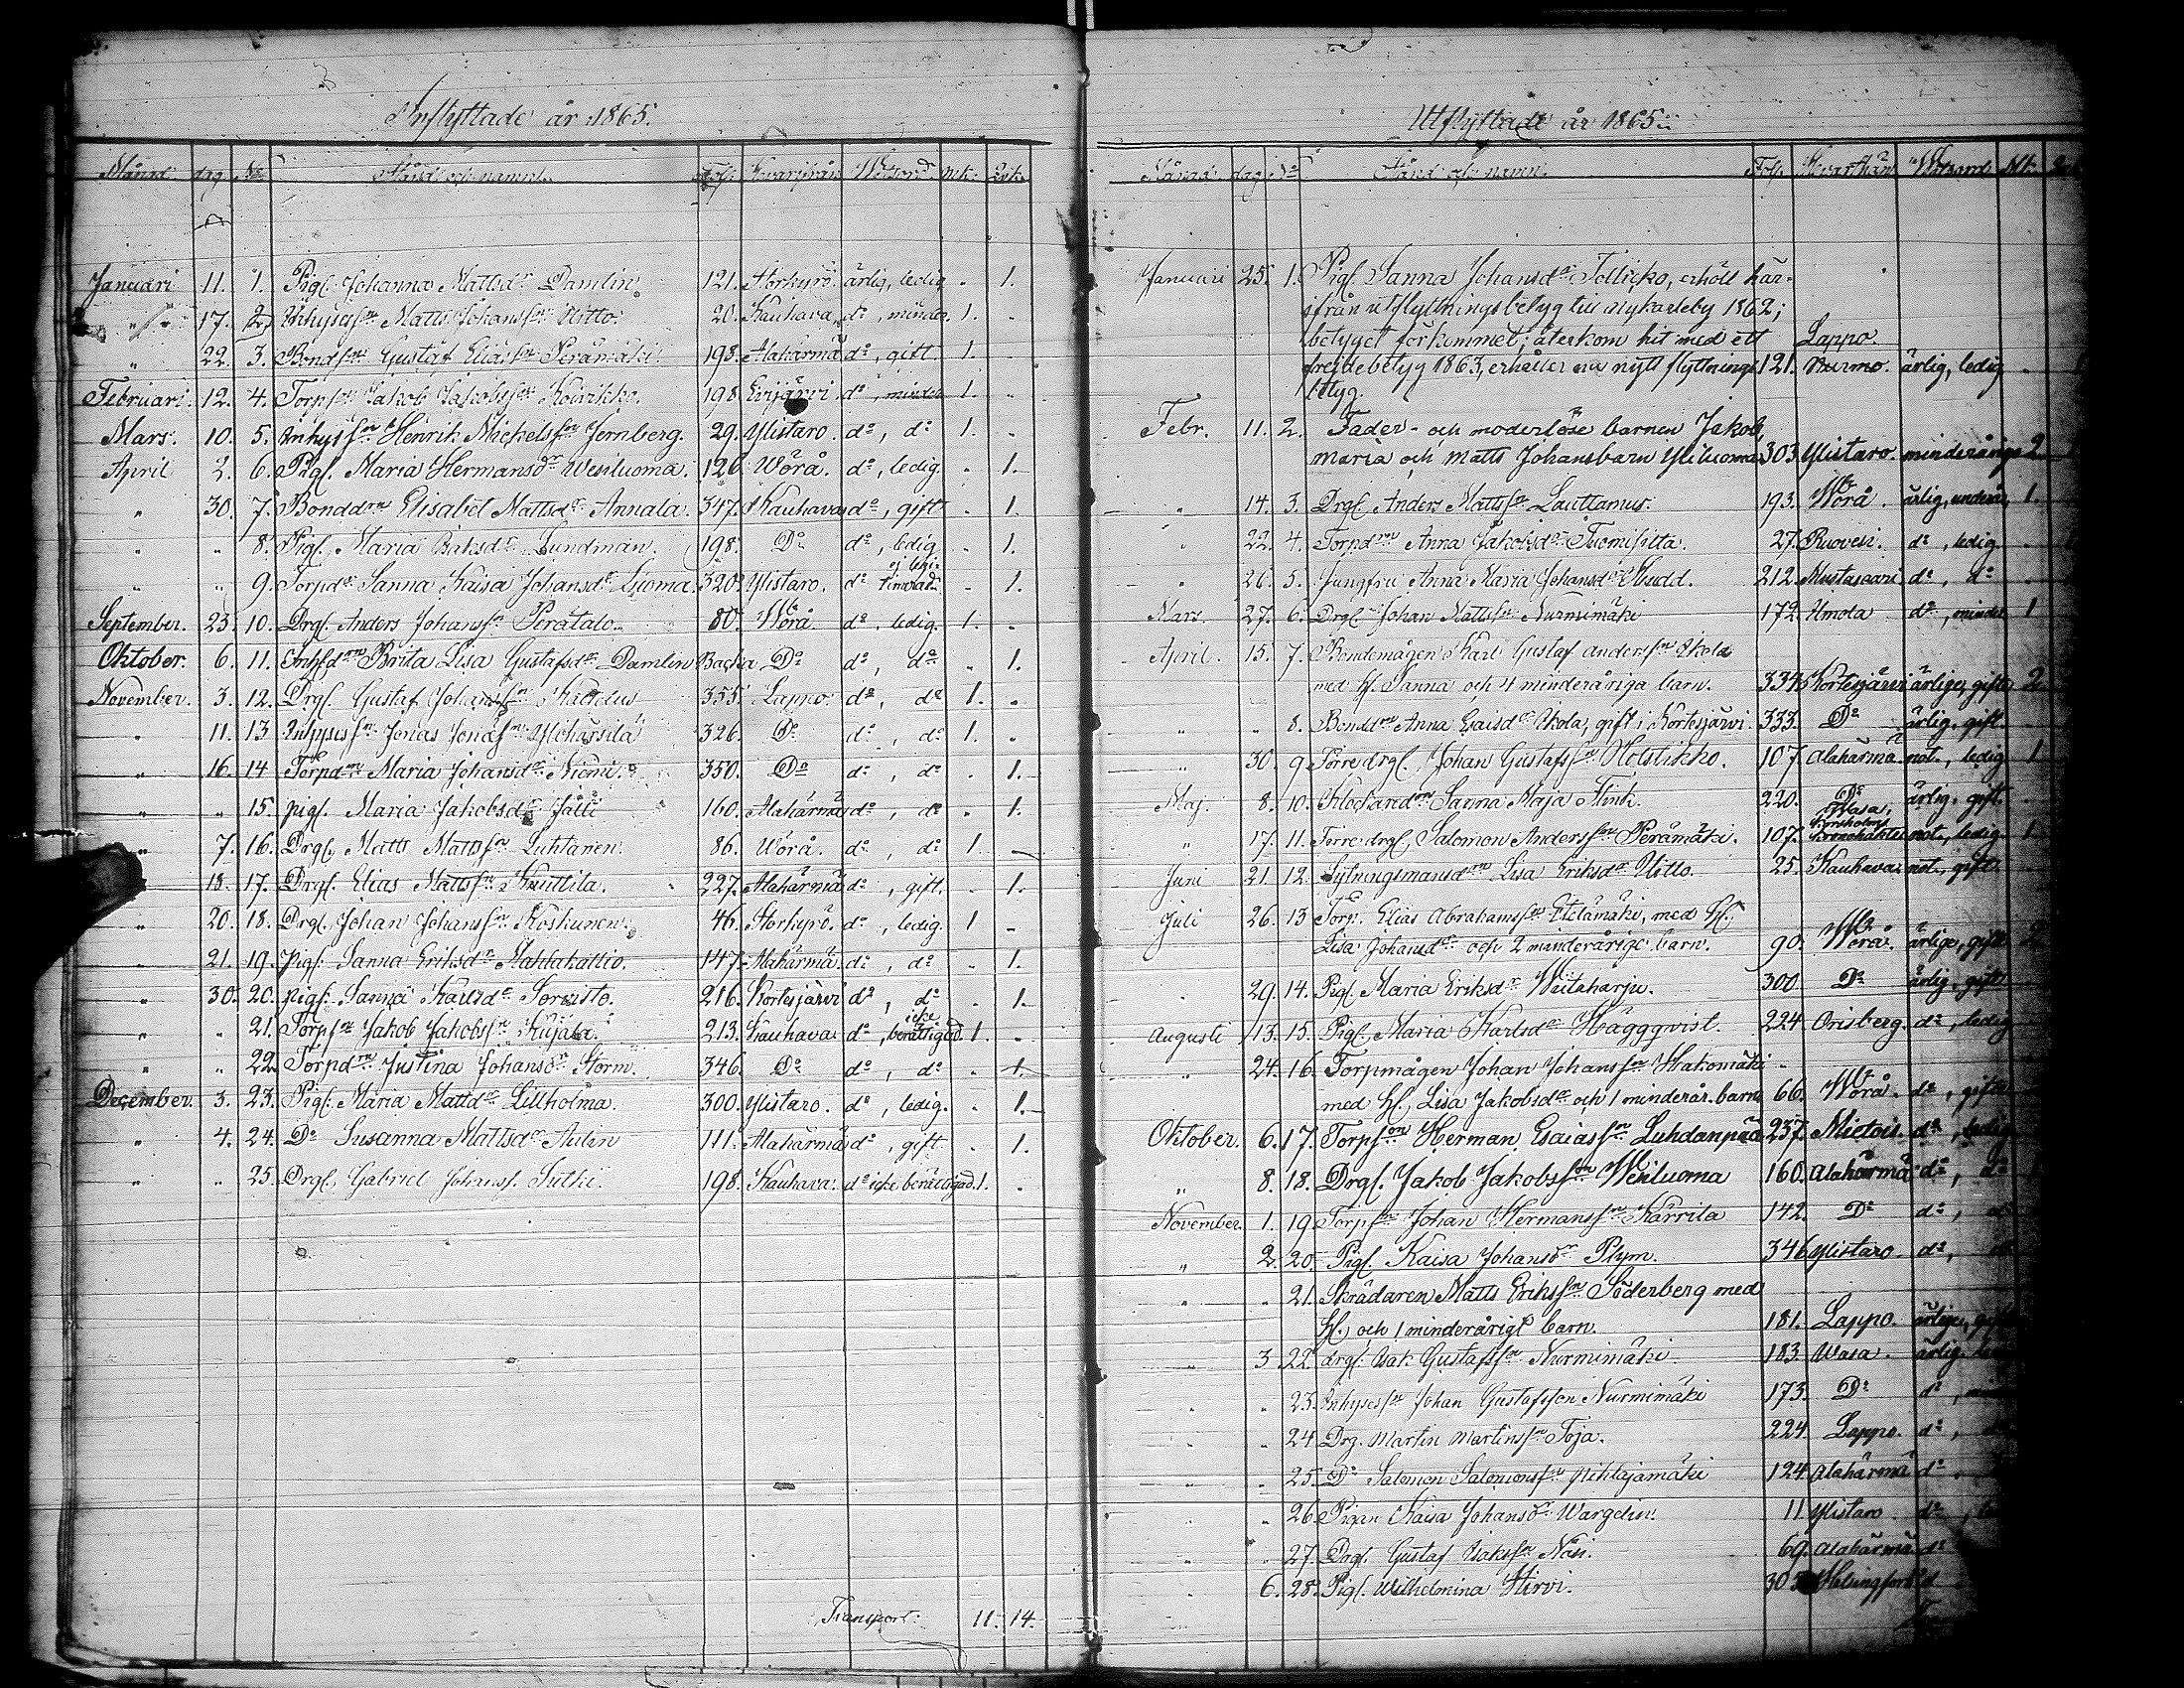 Inflyttade år 1865.
Månad. dag. No Stånd och namn. Fol. Hvarifrån Witsord. mk. Qvk.
Januari 11. 1. Pigl. Johanna Mattsdr Damlin 121. Storkyro ärlig, ledig . 1.
" 17. 2. Inhysessn Matts Johanssn Uitto. 20. Kauhava do, minder. 1. .
" 22. 3. Bondsn Gustaf Eliassn Perämäki 198. Alahärmä do, gift. 1.
Februari. 12. 4. Torpsn Jakob Jakobssn Koivikko. 198 Evijärvi do, minder 1. .
Mars. 10. 5. Inhyssn Henrik Mickelssn Jernberg. 29. Ylistaro. do, do 1. .
April 2. 6. Pigl. Maria Hermansdr Wesiluoma. 126. Wörå. do, ledig. . 1.
" 30. 7. Bonddrn Elisabet Mattsdr Annala. 347. Kauhava do, gift . 1.
" " 8. Pigl. Maria Isaksdr Sundman. 198. Do do, ledig . 1.
" " 9. Torpdr Sanna Kaisa Johansdr Luoma. 320. Ylistaro. do . 1.
September. 23. 10. Drgl. Anders Johanssn Perätalo. 80. Wörå do. ledig. 1. .
Oktober. 6. 11. Inhsdrn Brita Lisa Gustafsdr Damlin Backa Do do, do . 1.
November. 3. 12. Drgl. Gustaf Johanssn 355. Lappo. do, do 1. .
" 11. 13 Inhysessn Jonas Jonassn Ylihärsilä 326. Do do, do 1. .
" 16. 14 Torpdrn Maria Johansdr Niemi. 350. Do do, do . 1.
" " 15. pigl. Maria Jakobsdr Jälli 160. Alahärmä do, do . 1.
" 7. 16. Drgl. Matts Mattssn Luhtanen. 86. Wörå. do, do 1.
" 18. 17. Drgl. Elias Mattssn Knuttila. 227. Alahärmä do, gift. . 1.
" 20. 18. Drgl. Johan Johanssn Koskunen. 46. Storkyro. do, ledig. 1 .
" 21. 19. pigl. Sanna Eriksdr Mahlakallio. 147. Alahärmä. do, do . 1.
" 30. 20. pigl. Sanna Karlsdr Sorvisto. 216. Kortesjärvi do, do . 1.
" " 21. Torpsn Jakob Jakobssn Kujala. 213. Kauhava do, icke berättigad. 1. .
" " 22. Torpdrn Justina Johansdr Storm. 346. Do do, do . 1.
December. 3. 23. Pigl. Maria Mattsdr Lillholma. 300. Ylistaro. do, ledig. . 1.
" 4. 24. Do Susanna Mattsdr Aulin 111. Alahärmä do, gift . 1.
" " 25. Drgl. Gabriel Johanss. Sulki. 198. Kauhava. do icke berättigad. 1. .
Transport: 11. 14.
Utflyttade år 1865.
Månad. dag. No Stånd och namn. Fol. Hvarthän Witsord. Mk.
Januari 25. 1. Pigl. Sanna Johansdr Tollikko, erhöll här-
ifrån utflyttningsbetyg till Nykarleby 1862;
betyget förkommet; återkom hit med ett Lappo
frejdebetyg 1863, erhåller nu nytt flyttnings 121. Nurmo. ärlig, ledig .
betyg.
Febr. 11. 2. Fader- och moderlöse barnen Jakob,
Maria och Matts Johansbarn Yliluoma 303. Ylistaro. minderåriga 2.
" 14. 3. Drgl. Anders Mattssn Lauttamus. 193. Wörå. ärlig, underår. 1.
" 22. 4. Torpdrn Anna Jakobsdr Tuomisilta. 27. Ruovesi. do, ledig .
" 26. 5. Jungfru Anna Maria Johansdr Hudd. 212. Mustasaari do, do .
Mars. 27. 6. Drgl. Johan Mattssn Nurmimäki 172. Ilmola do, minder 1
April. 15. 7. Bondemågen Karl Gustaf Anderssn Skola
med h. Sanna och 4 minderåriga barn. 333. Kortesjärvi ärliga, gifta 2
" " 8. Bonddrn Anna Esaisdr Skola, gift i Kortesjärvi 333. Do ärlig, gift. .
" 30. 9 Torre drgl. Johan Gustafssn Holstikko. 107. Alahärmä not., ledig 1
Maj. 8. 10. Klockaredrn Sanna Maja Flink. 220. Do ärlig, gift. .
" 17. 11. Torre drgl. Salomon Anderssn Perämäki. 107. Wasa, Korsholms Kronohäkte not., ledig. 1
Juni 21. 12. Sytningsmansdrn Lisa Eriksdr Uitto. 25. Kauhava. not., gift
Juli 26. 13 Torp. Elias Abrahamssn Etelämäki, med h.
Lisa Johansdr och 2 minderårige barn. 90. Wörå. ärlige, gifte 2
" 29. 14. Pigl. Maria Eriksdr Wiitaharju. 300. Do ärlig, gift
Augusti 13. 15. Pigl. Maria Karlsdr Häggqvist. 224. Orisberg. do, ledig
" 24. 16. Torpmågen Johan Johanssn Hakomäki
med h. Lisa Jakobsdr och 1 minderår. barn 66. Wörå. do, gifta
Oktober. 6. 17. Torpson Herman Esaiassn Luhdanpää 237. Mietois. do, ledig
" 8. 18. Drgl. Jakob Jakobssn Wesiluoma 160. Alahärmä do, do
November. 1. 19. Torpsn Johan Hermanssn Kärrila 142. Do do, do
" 2. 20. Pigl. Kaisa Johansdr Plym. 346. Ylistaro do,
" " 21. Skrädaren Matts Erikssn Söderberg med
h. och 1 minderårigt barn. 181. Lappo. ärliga, gift
" 3 22. drgl. Isak Gustafssn Nurmimäki. 183. Wasa. ärlig.
" " 23. Inhysessn Johan Gustafsson Nurmimäki 173. Do do,
" " 24 Drg. Martin Martinssn Toja. 224. Lappo. do,
" " 25. Do Salomon Salomonssn Pihlajamäki 124. Alahärmä do
" " 26 Pigan Kaisa Johansdr Wargelin. 11. Ylistaro do,
" " 27. Drgl. Gustaf Isakssn Näsi. 69. Alahärmä do
" 6. 28. Pigl. Wilhelmina Hirvi. 305 Helsingfors d